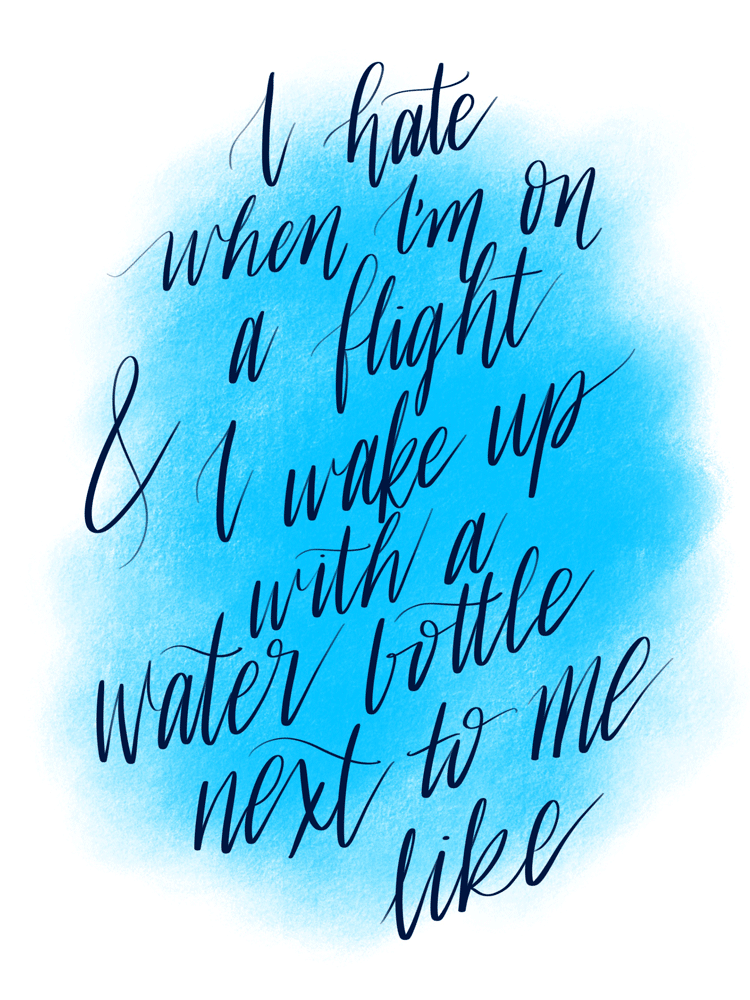 I hate
when I'm on
a flight
& I wake up
with a
water bottle
next to me
like